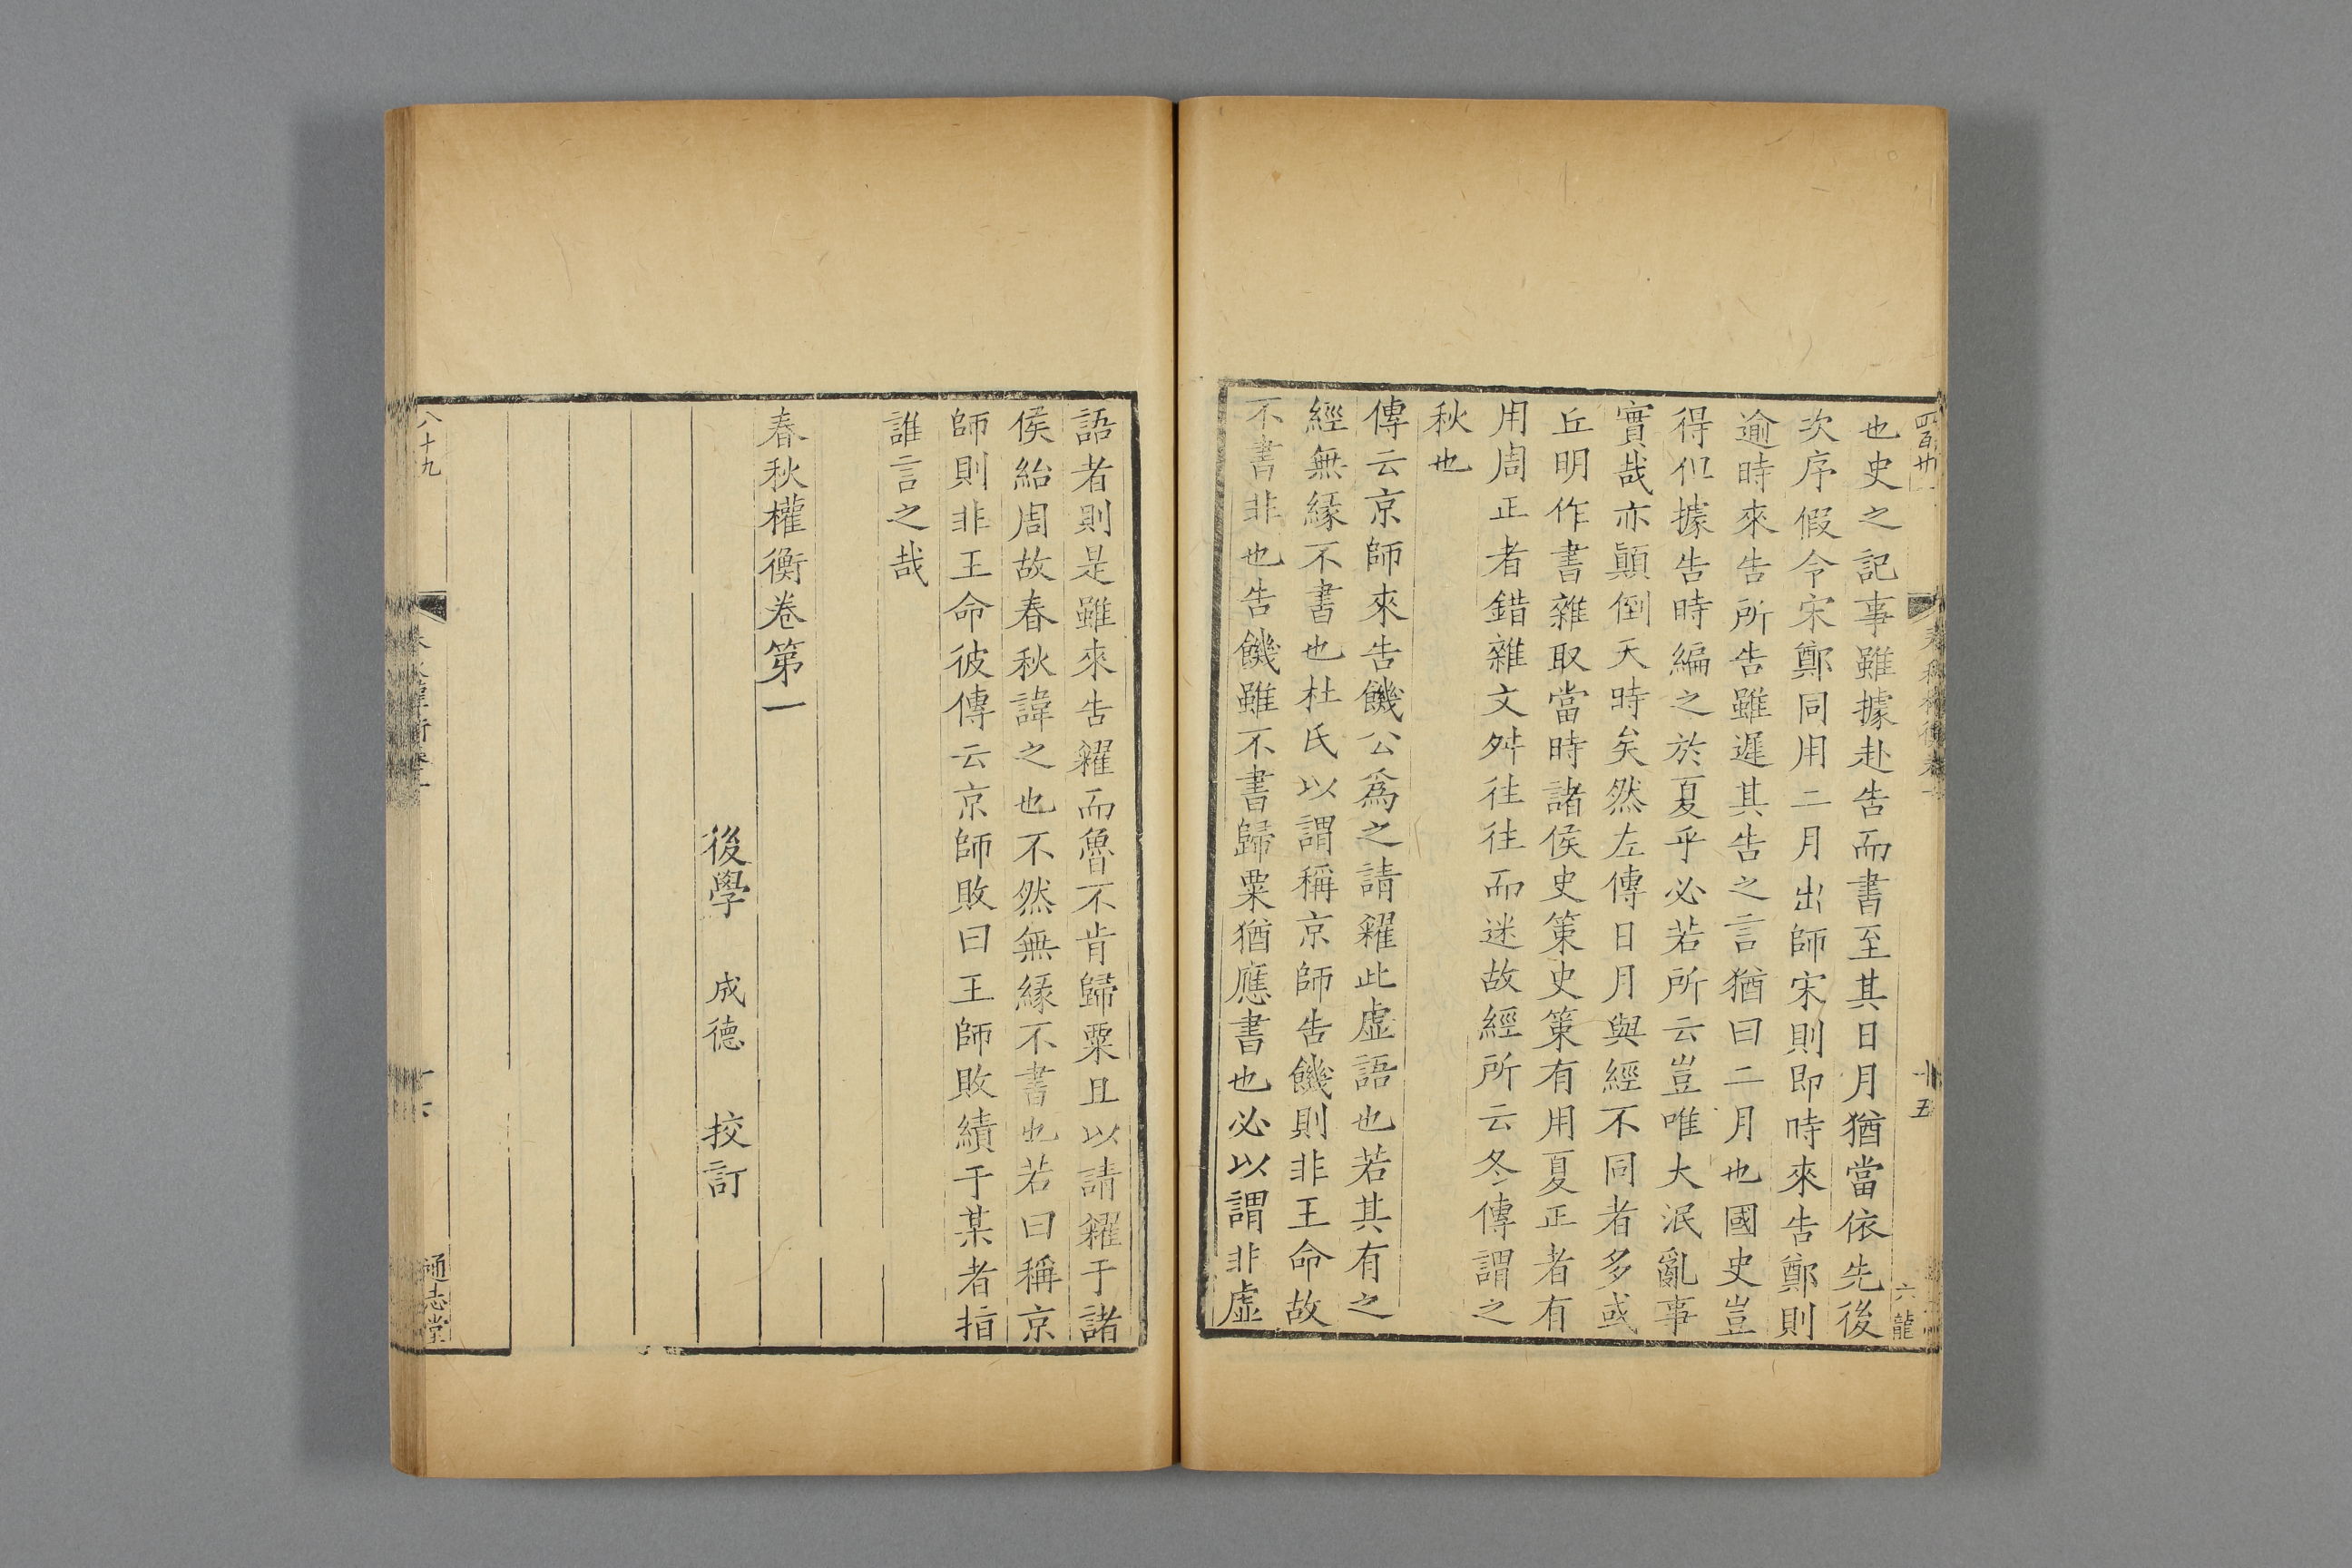 也史之記事雖據赴告而書至其日月猶當依先後
次序假令宋鄭同用二月出師宋則即時來告鄭則
逾時來告所告雖遲其告之言猶曰二月也國史豈
得但據告時編之於夏乎必若所云豈唯大泯亂事
實哉亦顛倒天時矣然左傳日月與經不同者多或
丘明作書雜取當時諸侯史策史策有用夏正者有
用周正者錯雜文舛往往而迷故經所云冬傳謂之
秋也
傳云京師來告饑公爲之請糴此虛語也若其有之
經無緣不書也杜氏以謂稱京師告饑則非王命故
不書非也告饑雖不書歸粟猶應書也必以謂非虛
六龍
語者則是雖來告糴而魯不肯歸粟且以請糴于諸
侯紿周故春秋諱之也不然無緣不書也若曰稱京
師則非王命彼傳云京師敗曰王師敗績于某者指
誰言之哉
春秋權衡卷第一
後學 成德 挍訂
八十九
通志堂